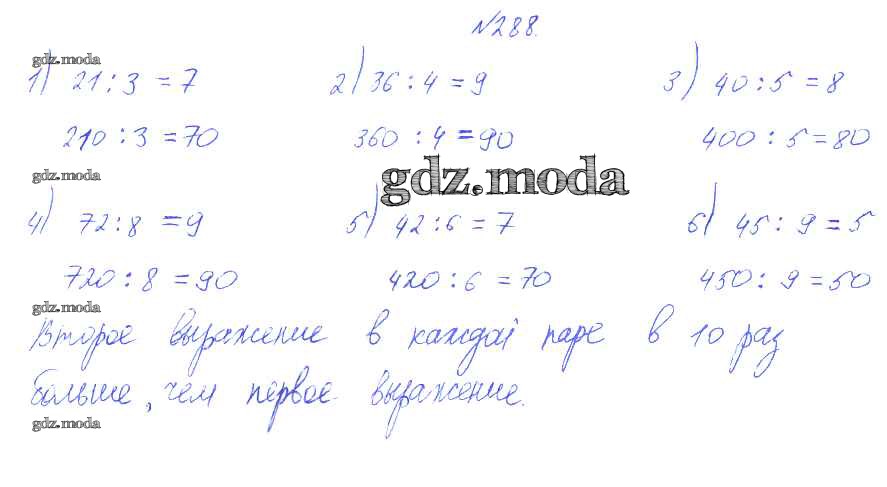 №288.
gdz.moda
1) 21 : 3 = 7 2) 36 : 4 = 9 3) 40 : 5 = 8
210 : 3 = 70 360 : 4 = 90 400 : 5 = 80
gdz.moda gdz.moda
4) 72 : 8 = 9 5) 42 : 6 = 7 6) 45 : 9 = 5
720 : 8 = 90 420 : 6 = 70 450 : 9 = 50
gdz.moda
Второе выражение в каждой паре в 10 раз
больше, чем первое выражение.
gdz.moda